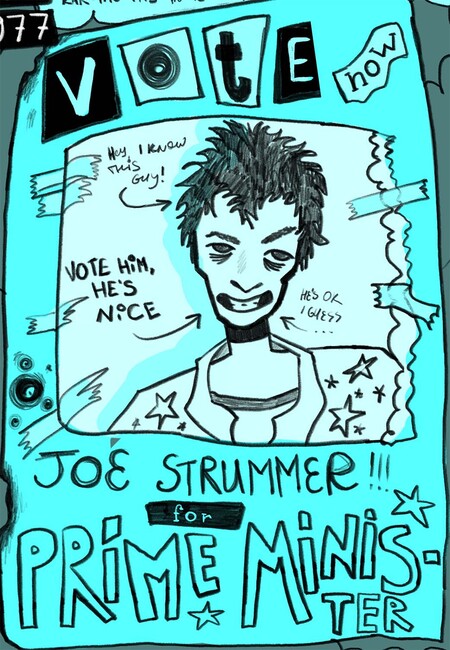 077
VOTE
now
Hey, I KNOW
THIS
GUY!
VOTE HiM,
HE'S
NiCE
HE'S OK
I GUESS
...
JOE STRUMMER!!!
for
PRiME MiNiS-
TER